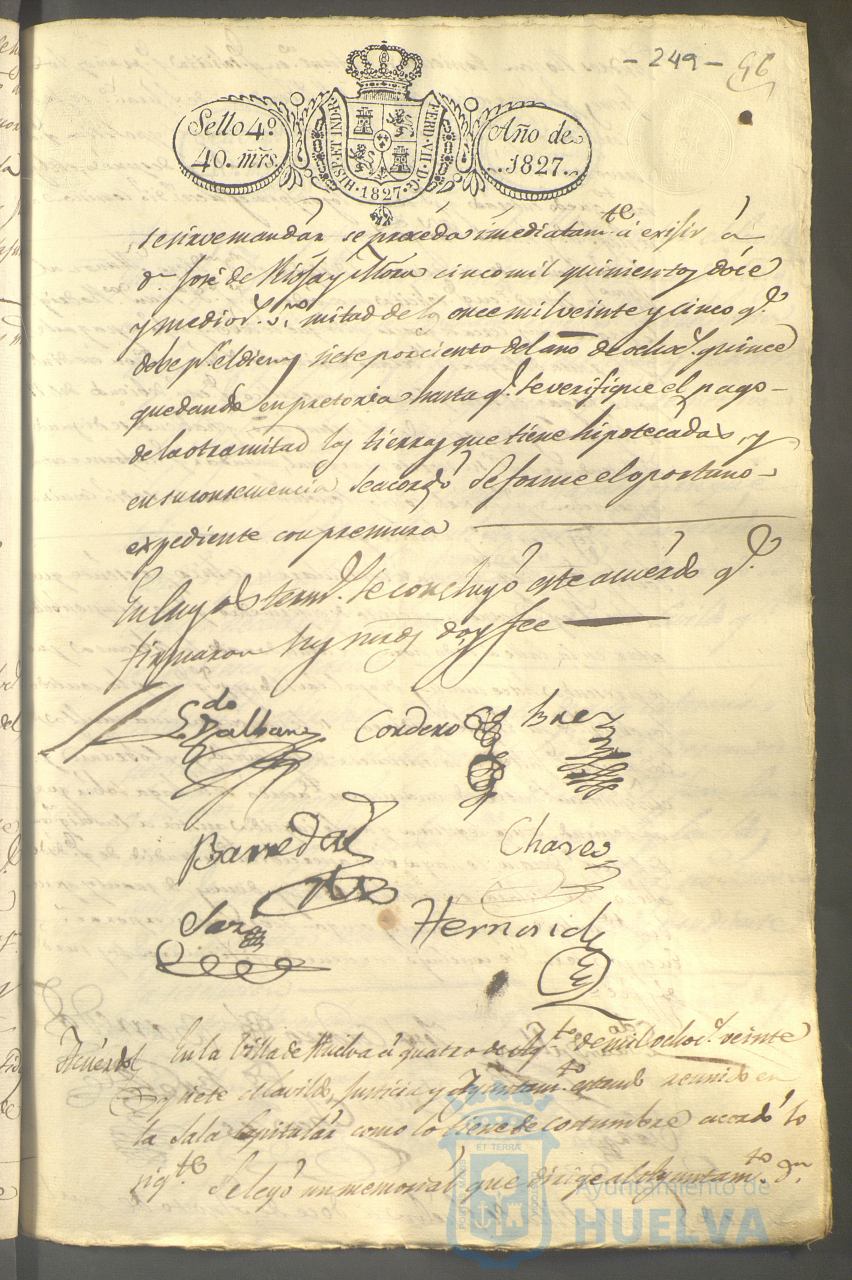 - 249 - 96
Sello 4º.
40. mrs.
HISP. ET IND. R. FERD. VII. D. G. 1827.
Año de
1827.
se sirve mandár se proceda inmediatamte. á exîsir á
dn. José de y Mora cinco mil quinientos dóce
y medio rs. von. mitad de los once mil veinte y cinco q.e
debe pr. el diez y siete por ciento del año de ochocs. quince
quedando en hasta q.e se verifique el pago
de la otra mitad las tierras que tiene hipotecadas, y
en su consecuencia se acordó se forme el oportuno
expediente con premura
En cuyos termos. se concluyó este acuerdo q.e
firmaron sus mrds. doy fee
Ldo. Balbanz Cordero
Barreda Chaves
Saz Hernand
Acuerdo En la Villa de Huelva á quatro de Agto. de mil ochocs. veinte
y siete el Cavildo, Justicia y Ayuntamto. estando reunido en
la Sala Capitulár como lo tiene de costumbre acordó lo
sigte.
Se leyó un memorial que dirige al Ayuntamto. Dn.
ET TERRÆ
Ayuntamiento de
HUELVA